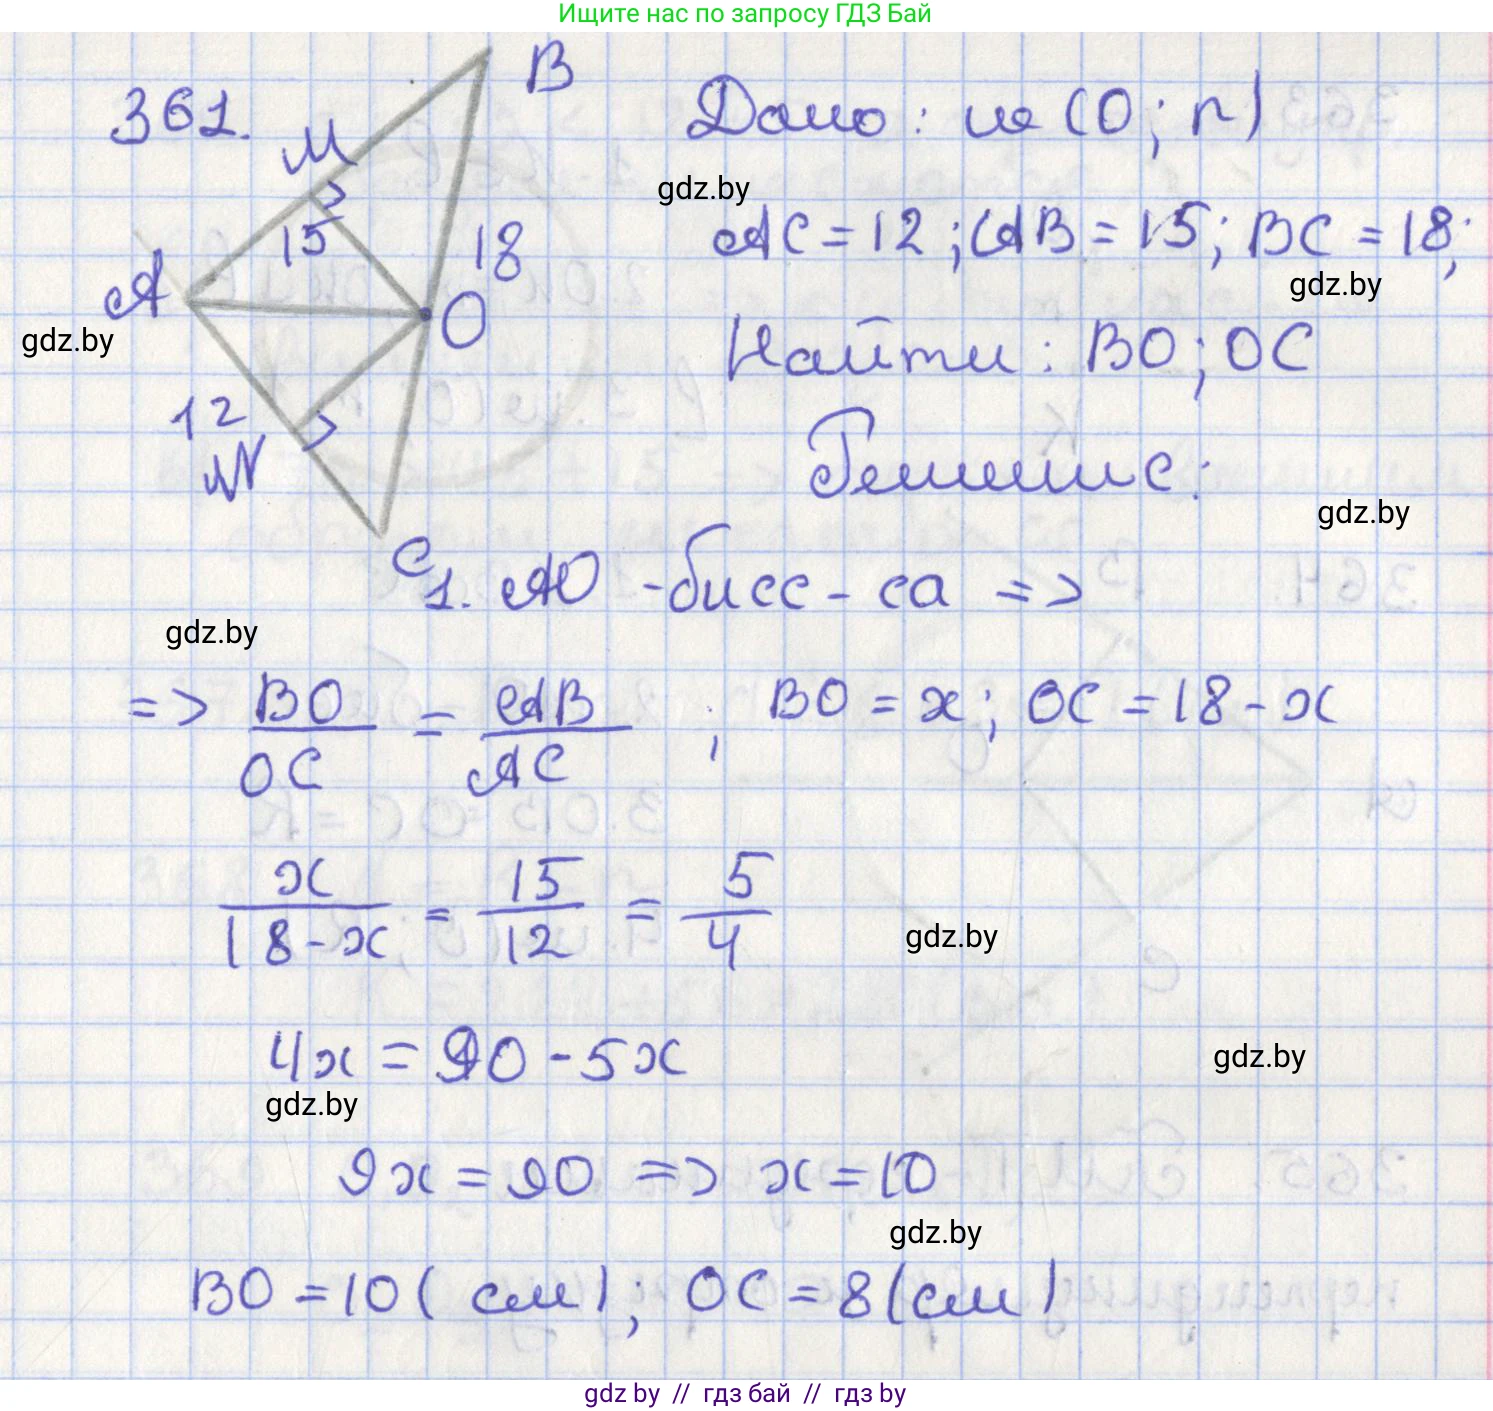 Ищите нас по запросу ГДЗ Бай
361.
B
M
15
18
A
O
12
N
C
Дано: (O; r)
gdz.by
AC = 12; AB = 15; BC = 18;
gdz.by
gdz.by
Найти: BO; OC
Решение:
gdz.by
1. AO - бисс-са =>
gdz.by
=> BO/OC = AB/AC ; BO = x; OC = 18 - x
x/18-x = 15/12 = 5/4
gdz.by
4x = 90 - 5x
gdz.by
gdz.by
9x = 90 => x = 10
gdz.by
BO = 10 (см); OC = 8 (см)
gdz by // гдз бай // гдз by